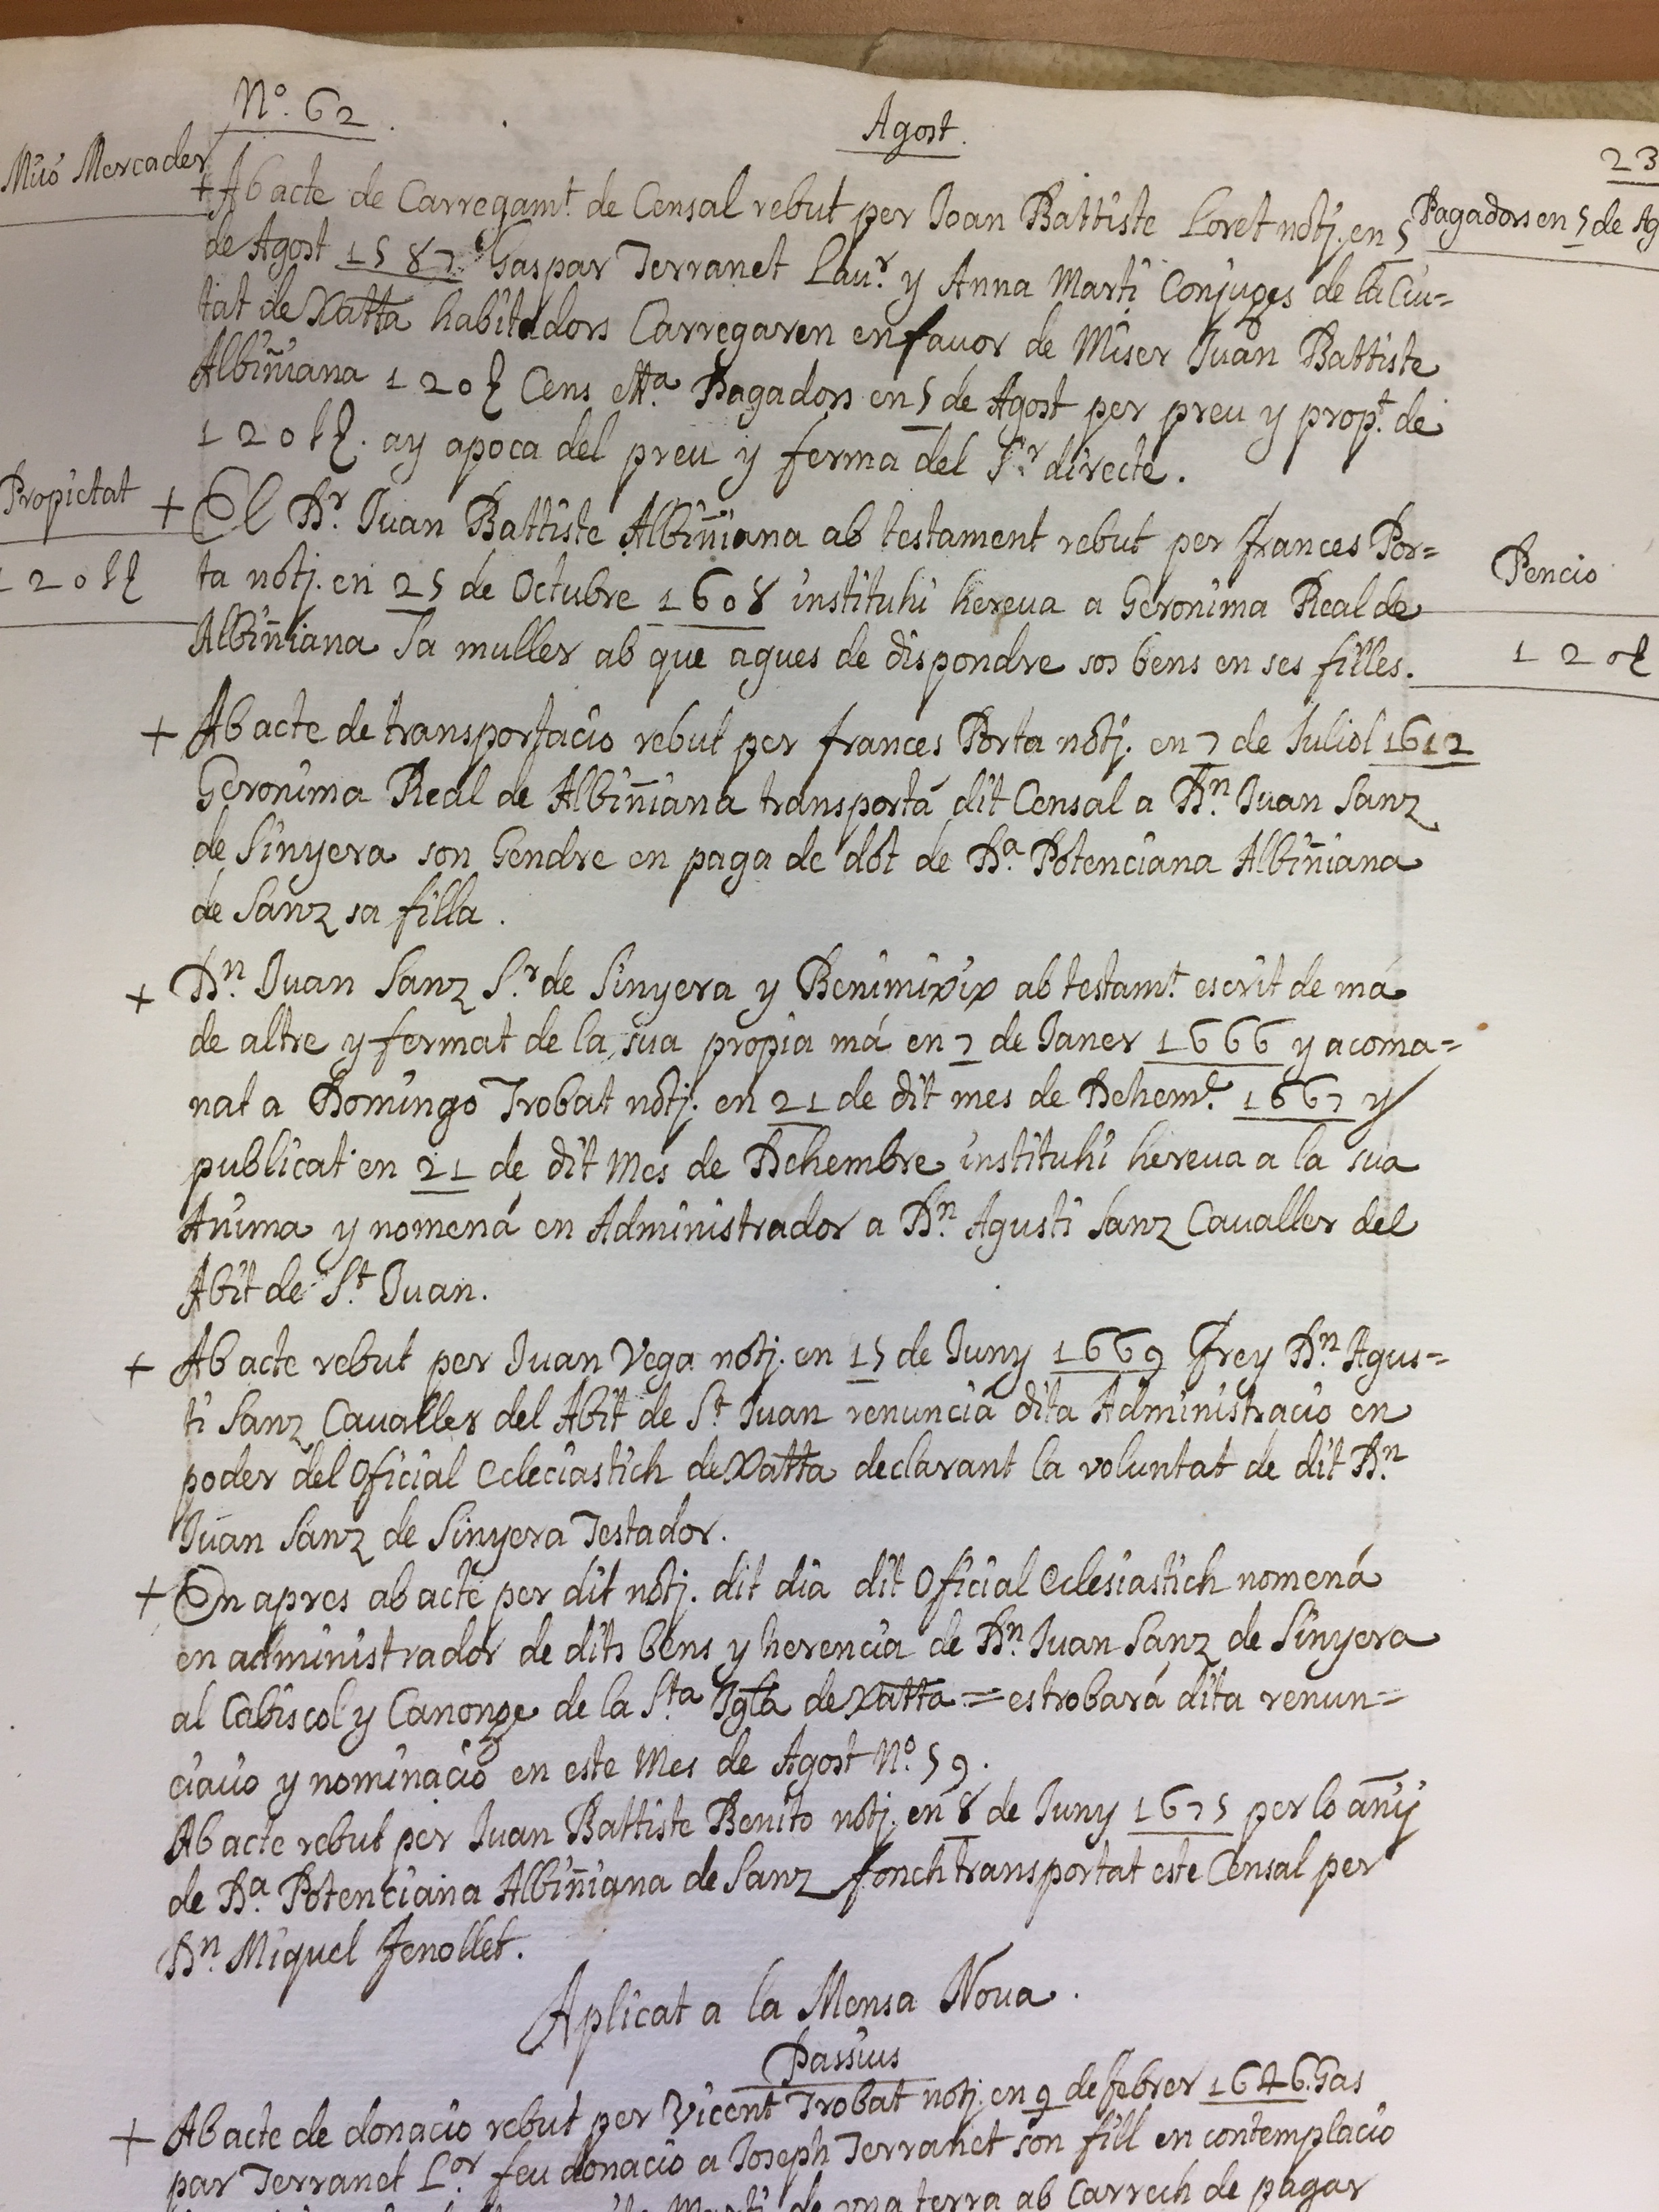 Nº. 62
Agost.
23
Miró Mercader
Pagadors en 5 de Ag
+ Ab acte de Carregamt. de Censal rebut per Joan Battiste Loret notj. en 5
de Agost 1587. Gaspar Terranet Laur. y Anna Marti Conjuges de la Ciu=
tat de Xatta habitadors Carregaren en favor de Miser Juan Battiste
Albiñiana 120 ₰ Cens Ma. Pagadors en 5 de Agost per preu y propt. de
120 ₶. ay apoca del preu y ferma del Sr. directe.
Propietat
120 ₶
+ El Dr. Juan Battiste Albiñiana ab testament rebut per frances Por=
ta notj. en 25 de Octubre 1608 instituhi hereva a Geronima Real de
Albiñiana Sa muller ab que agues de dispondre sos bens en ses filles.
Pencio
120 ₰
+ Ab acte de transportacio rebut per frances Porta notj. en 7 de Juliol 1612
Geronima Real de Albiñiana transportá dit Censal a Dn. Juan Sanz
de Sinyera son Gendre en paga de dot de Da. Potenciana Albiñiana
de Sanz sa filla.
+ Dn. Juan Sanz Sr. de Sinyera y Benimixix ab testamt. escrit de má
de altre y fermat de la sua propia má en 7 de Janer 1666 y acoma=
nat a Domingo Trobat notj. en 21 de dit mes de Dehemr. 1667 y
publicat en 21 de dit Mes de Dehembre instituhi hereva a la sua
Anima y nomená en Administrador a Dn. Agusti Sanz Cavaller del
Abit de St. Juan.
+ Ab acte rebut per Juan Vega notj. en 15 de Juny 1669 Frey Dn. Agus=
ti Sanz Cavaller del Abit de St. Juan renunciá dita Administracio en
poder del Oficial Ecleciastich de Xatta declarant la voluntat de dit Dn.
Juan Sanz de Sinyera Testador.
+ En apres ab acte per dit notj. dit dia dit Oficial Eclesiastich nomená
en administrador de dits bens y herencia de Dn. Juan Sanz de Sinyera
al Cabiscol y Canonge de la Sta. Igla de Xatta = es trobará dita renun=
ciacio y nominacio en este Mes de Agost Nº. 59.
Ab acte rebut per Juan Battiste Benito notj. en 8 de Juny 1675 per lo añy
de Da. Potenciana Albiñiana de Sanz fonch transportat este Censal per
Dn. Miquel Fenollet.
Aplicat a la Mensa Nova.
Passius
+ Ab acte de donacio rebut per Vicent Trobat notj. en 9 de febrer 1646. Gas
par Terranet Lor. feu donacio a Joseph Terranet son fill en contemplacio
Marti de una terra ab Carrech de pagar